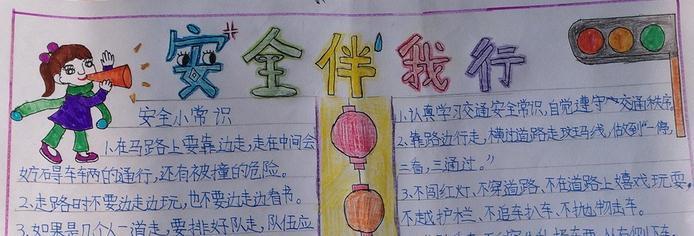 安全伴我行
安全小常识
1.在马路上要靠边走,走在中间会
妨碍车辆的通行,还有被撞的危险。
2.走路时不要边走边玩,也不要边走边看书。
3.如果是几个人一道走,要排好队走,队伍应
1.认真学习交通安全常识,自觉遵守交通秩序
2.靠路边行走,横过道路走斑马线,做到“一停,
二看,三通过。”
3.不闯红灯、不穿道路、不在道路上嬉戏玩耍。
不越护栏、不追车扒车、不抛物击车。